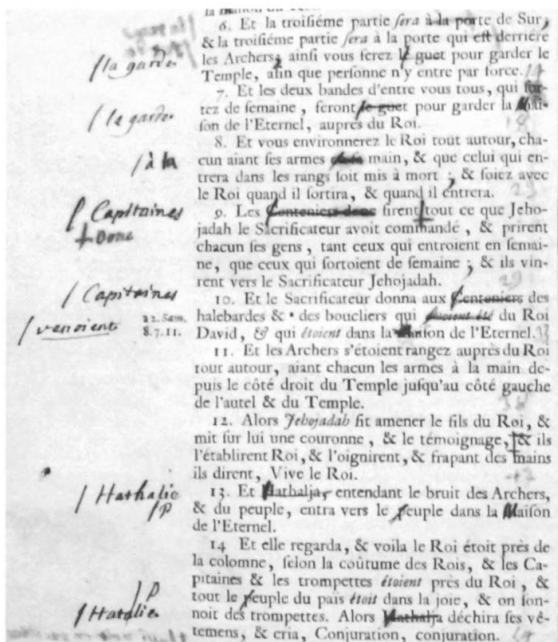 6. Et la troisiéme partie sera à la porte de Sur,
& la troisiéme partie sera à la porte qui est derriére
les Archers, ainsi vous ferez le guet pour garder le
Temple, afin que personne n'y entre par force.
/ la garde
7. Et les deux bandes d'entre vous tous, qui sor-
tez de semaine, feront le guet pour garder la Mai-
son de l'Eternel, auprès du Roi.
/ la garde
8. Et vous environnerez le Roi tout autour, cha-
cun aiant ses armes main, & que celui qui en-
trera dans les rangs soit mis à mort ; & soiez avec
le Roi quand il sortira, & quand il entrera.
/ à la
9. Les Centeniers donc firent tout ce que Jeho-
jadah le Sacrificateur avoit commandé, & prirent
chacun ses gens, tant ceux qui entroient en semai-
ne, que ceux qui sortoient de semaine ; & ils vin-
rent vers le Sacrificateur Jehojadah.
Capitaines
Donc
10. Et le Sacrificateur donna aux Centeniers des
halebardes & des boucliers qui avoient été du Roi
David, & qui étoient dans la Maison de l'Eternel.
/ Capitaines
/ venoient
2 2. Sam.
8. 7. 11.
11. Et les Archers s'étoient rangez auprès du Roi
tout autour, aiant chacun les armes à la main de-
puis le côté droit du Temple jusqu'au côté gauche
de l'autel & du Temple.
12. Alors Jehojadah fit amener le fils du Roi, &
mit sur lui une couronne, & le témoignage, & ils
l'établirent Roi, & l'oignirent, & frapant des mains
ils dirent, Vive le Roi.
13. Et Hathalja, entendant le bruit des Archers,
& du peuple, entra vers le peuple dans la Maison
de l'Eternel.
/ Hathalie
/ p
14 Et elle regarda, & voila le Roi étoit près de
la colomne, selon la coûtume des Rois, & les Ca-
pitaines & les trompettes étoient près du Roi, &
tout le peuple du païs étoit dans la joie, & on son-
noit des trompettes. Alors Hathalja déchira ses vê-
temens, & cria, Conjuration, conjuration.
/ p
/ Hatalie